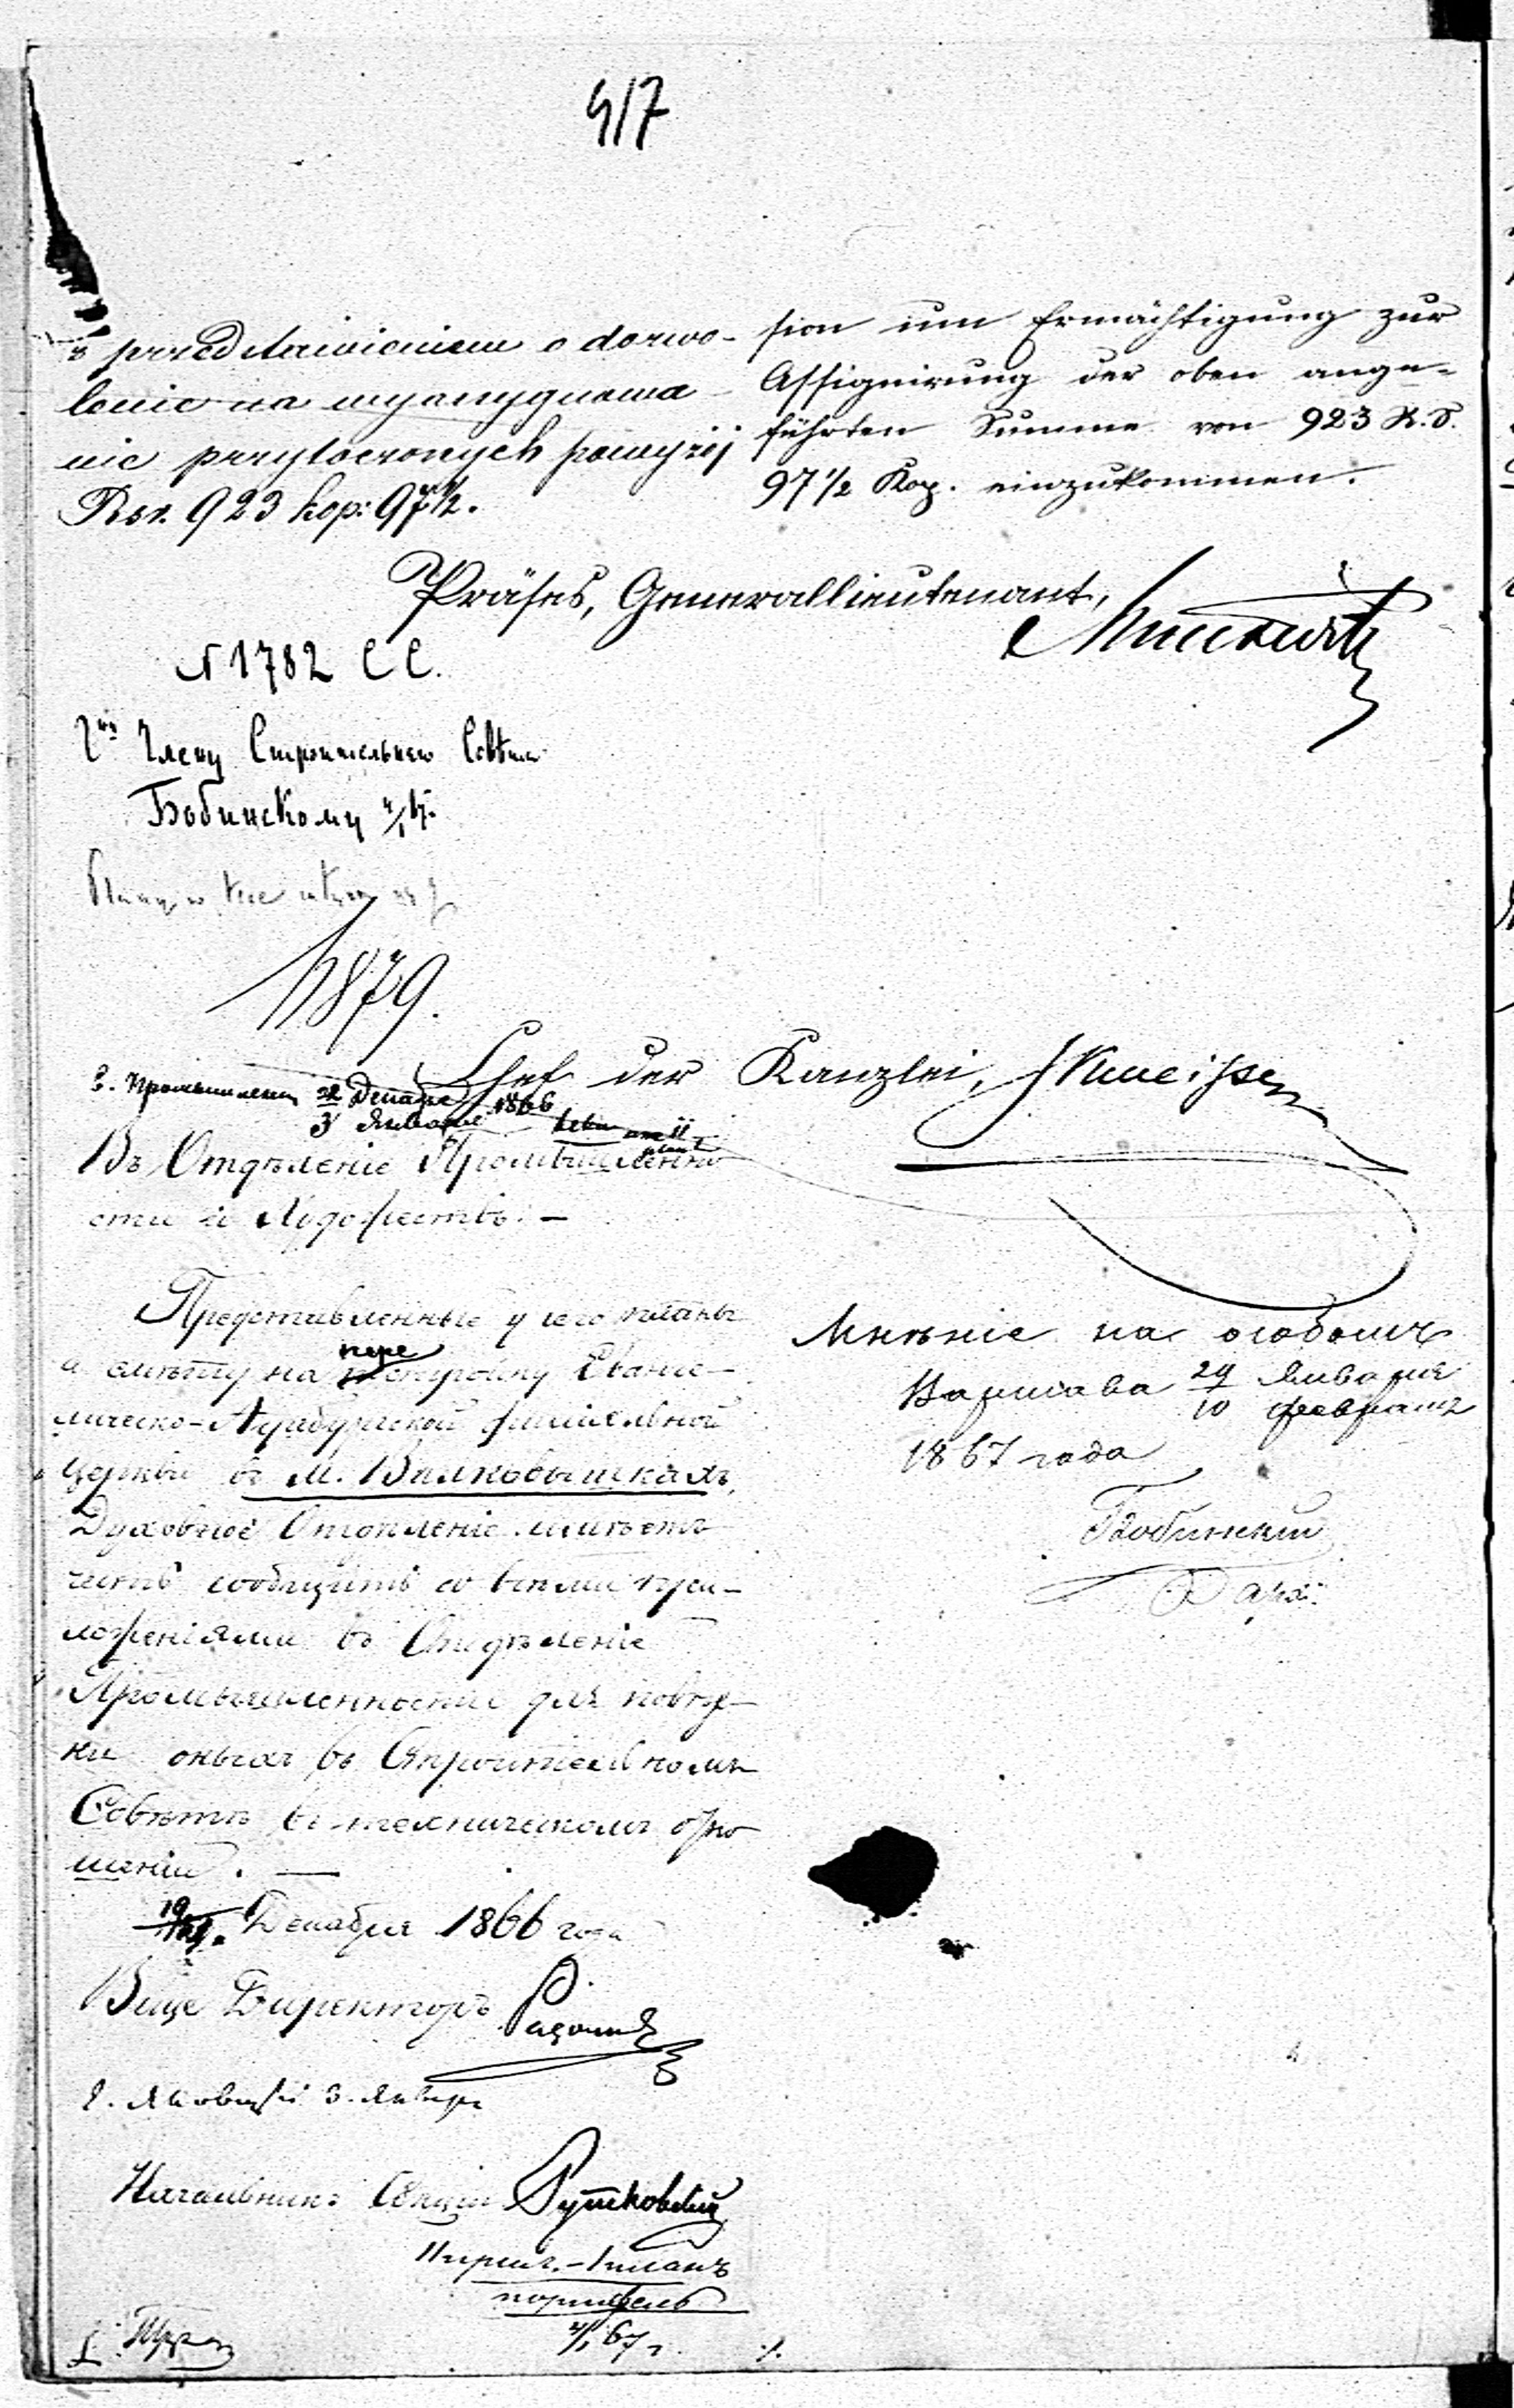 417
z przedstawieniem o dozwo-
lenie na wyassygnowa
nie przytoczonych powyżej
Rsr. 923 kop: 97 1/2.
sion um Ermächtigung zur
Assignirung der oben ange-
führten Summe von 923 R. S.
97 1/2 Kop. einzukommen.
Präses, Generallieutenant,
N 1782 С С.
Члену Строительнаго Совѣта
Бобинскому
1879.
Chef der Kanzlei,
22 Декабря 1866
3 Января
Въ Отдѣленіе Промышленно
сти и Художествъ. —
Представленные планы
и смѣту на перестройку Еванге-
лическо-Аугсбургской филіяльной
церкви въ м. Вилковышкахъ,
Духовное Отдѣленіе имѣетъ
честь сообщить со всѣми при-
ложеніями въ Отдѣленіе
Промышленности для повѣр-
ки оныхъ въ Строительномъ
Совѣтѣ въ техническомъ отно
шеніи. —
19/31 Декабря 1866 года
Вице Директоръ
3. Январ
Начальникъ Секціи Рутковскій
67 г.
Мнѣніе на особомъ
Варшава 29 Января
10 февраля
1867 года
Бобинскій